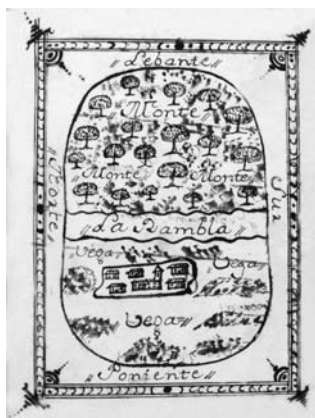 „Lebante„
„Monte„
„Monte„ „Monte„
„Norte„
„Sur„
„La Rambla„
Vega„ Vega„
Vega„
„Poniente„